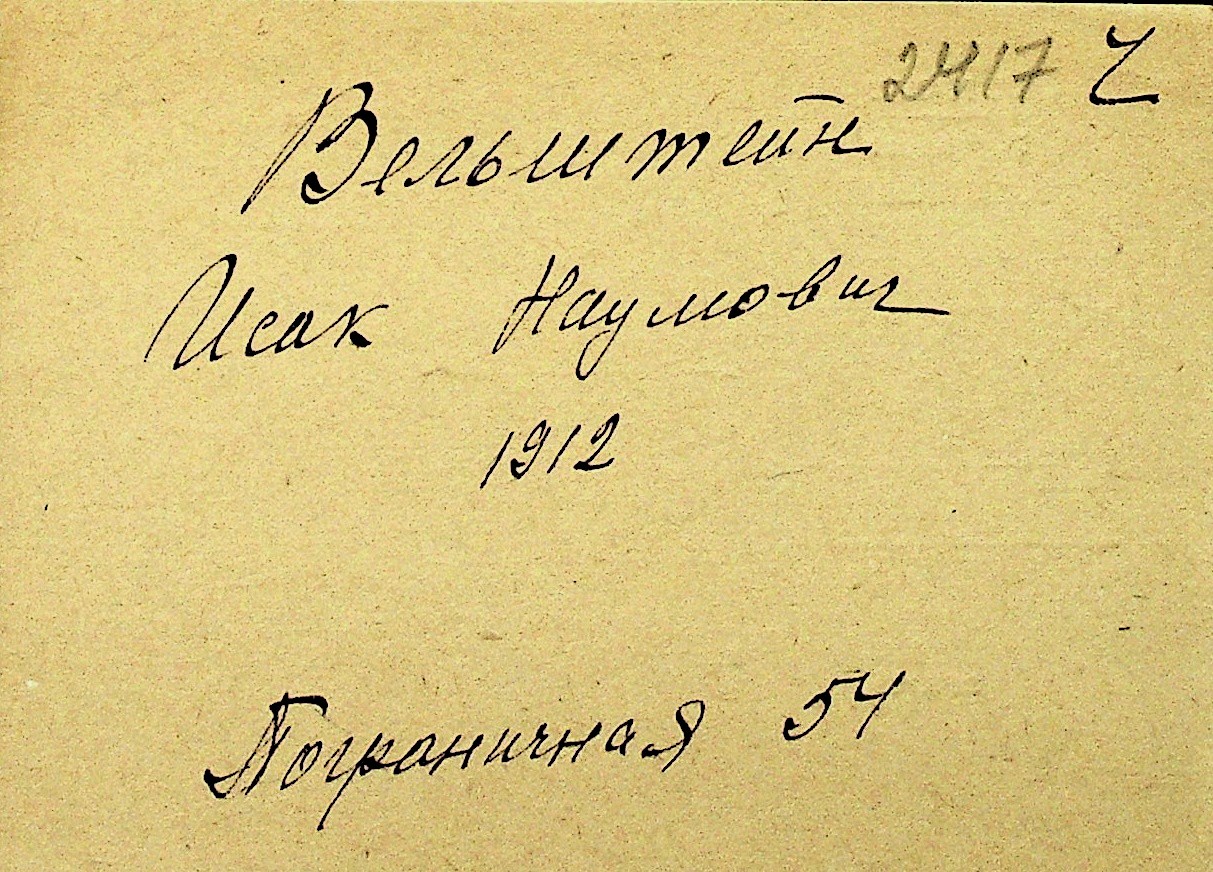 2417 Ч
Вельштейн
Исак Наумович
1912
Пограничная 54